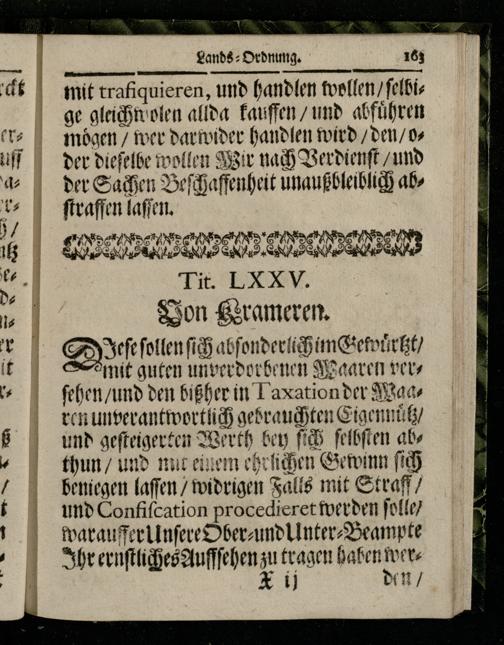 Lands-Ordnung. 163
mit trafiquieren, und handlen wollen / selbi-
ge gleichwolen allda kauffen / und abführen
mögen / wer darwider handlen wird / den / o-
der dieselbe wollen Wir nach Verdienst / und
der Sachen Beschaffenheit unaußbleiblich ab-
straffen lassen.
Tit. LXXV.
Von Krameren.
DJese sollen sich absonderlich im Gewürtzt /
mit guten unverdorbenen Waaren ver-
sehen / und den bißher in Taxation der Waa-
ren unverantwortlich gebrauchten Eigennütz /
und gesteigerten Werth bey sich selbsten ab-
thun / und mit einem ehrlichen Gewinn sich
beniegen lassen / widrigen Falls mit Straff /
und Confiscation procedieret werden solle /
warauffer Unsere Ober- und Unter-Beampte
Jhr ernstliches Auffsehen zu tragen haben wer-
X ij den /